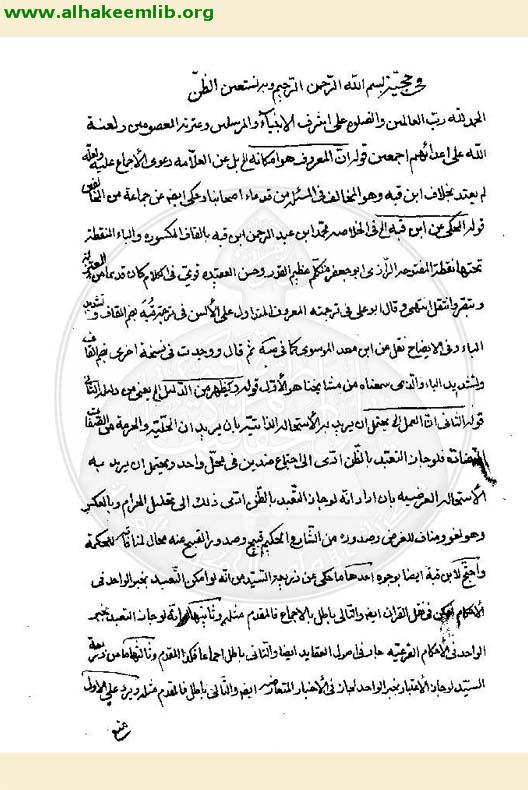 www.alhakeemlib.org
و حجيّة بسم الله الرّحمن الرّحيم وبه نستعين الظنّ
الحمد لله ربّ العالمين والصّلوة على اشرف الانبياء والمرسلين وعترته المعصومين ولعنة
الله على اعدائهم اجمعين قوله انّ المعروف هو امكانه الخ بل عن العلّامة دعوى الاجماع عليه ولعلّه
لم يعتد بخلاف ابن قبه وهو المخالف فى المسئلة من قدماء اصحابنا وحكى ايضا عن جماعة من
قوله المحكى عن ابن قبه الخ فى الخلاصه محمّد ابن عبد الرحمن ابن قبه بالقاف المكسوره والباء النقطة
تحتها نقطة المفتوحه الرّازى ابو جعفر متكلّم عظيم القدر وحسن العقيده قوىّ فى الكلام كان قديما من المعتزلة
و تبصّر وانتقل انتهى وقال ابو على فى ترجمته المعروف المتداول على الألسن فى ترجمة قبّه بضم القاف وتشديد
الباء وفى الايضاح نقل عن ابن معد الموسوى كما فى مته ثم قال ووجدت فى نسخة اخرى بضم القاف
وتشديد الباء والّذى سمعناه من مشايخنا هو الأوّل قوله ويظهر من الدّليل الخ يعنى من دليله الثانى
قوله الثانى انّ العمل الخ يحتمل ان يريد به الأستحاله الذاتيّه بان يريد ان الحلّيّة والحرمة من الصّفات
المتضادّة فلو جاز التعبّد بالظّن ادّى الى اجتماع ضدين فى محلّ واحد ويحتمل ان يريد به
الأستحاله العرضيه بان اراد انّه لو جاز التّعبد بالظّن ادّى ذلك الى تحليل الحرام وبالعكس
وهو لغو ومناف للغرض وصدوره من الشّارع الحكيم قبيح وصدور القبيح عنه محال لمنافاته للحكمة
واحتج لابن قبة ايضا بوجوه احدها ما حكى عن ذريعة السيّد من انّه لو امكن التّعبد بخبر الواحد فى
الأحكام لامكن فى نقل القران ايضا والتالى باطل بالاجماع فالمقدم مثله وثانيها انه لو جاز التعبد بخبر
الواحد فى الأحكام الفرعيّه جاز فى اصول العقايد ايضا والتالى باطل اجماعا فكذا المقدم وثالثها ما من ذريعة
السيّد لو جاز الأعتبار بخبر الواحد لجاز فى الأخبار المتعارضه ايضا والتّالى باطل فالمقدم مثله ويرد على الاول
منع